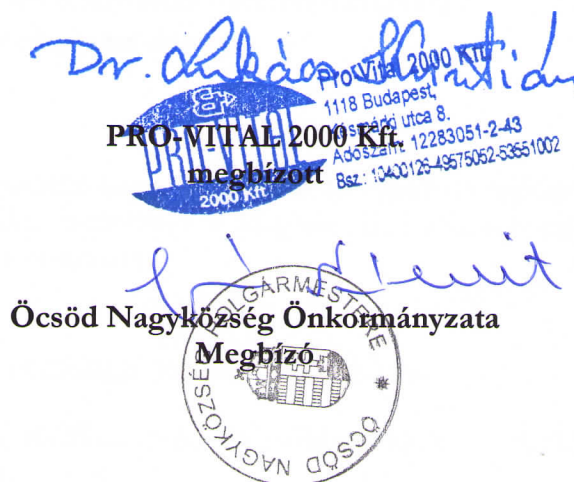 Dr. Lukács Krisztián
Pro-Vital 2000 Kft.
1118 Budapest,
utca 8.
Adószám: 12283051-2-43
Bsz.: 10400126-49575052-53551002
PRO-VITAL
2000 Kft.
PRO-VITAL 2000 Kft.
megbízott
Öcsöd Nagyközség Önkormányzata
Megbízó
ÖCSÖD NAGYKÖZSÉG POLGÁRMESTERE *